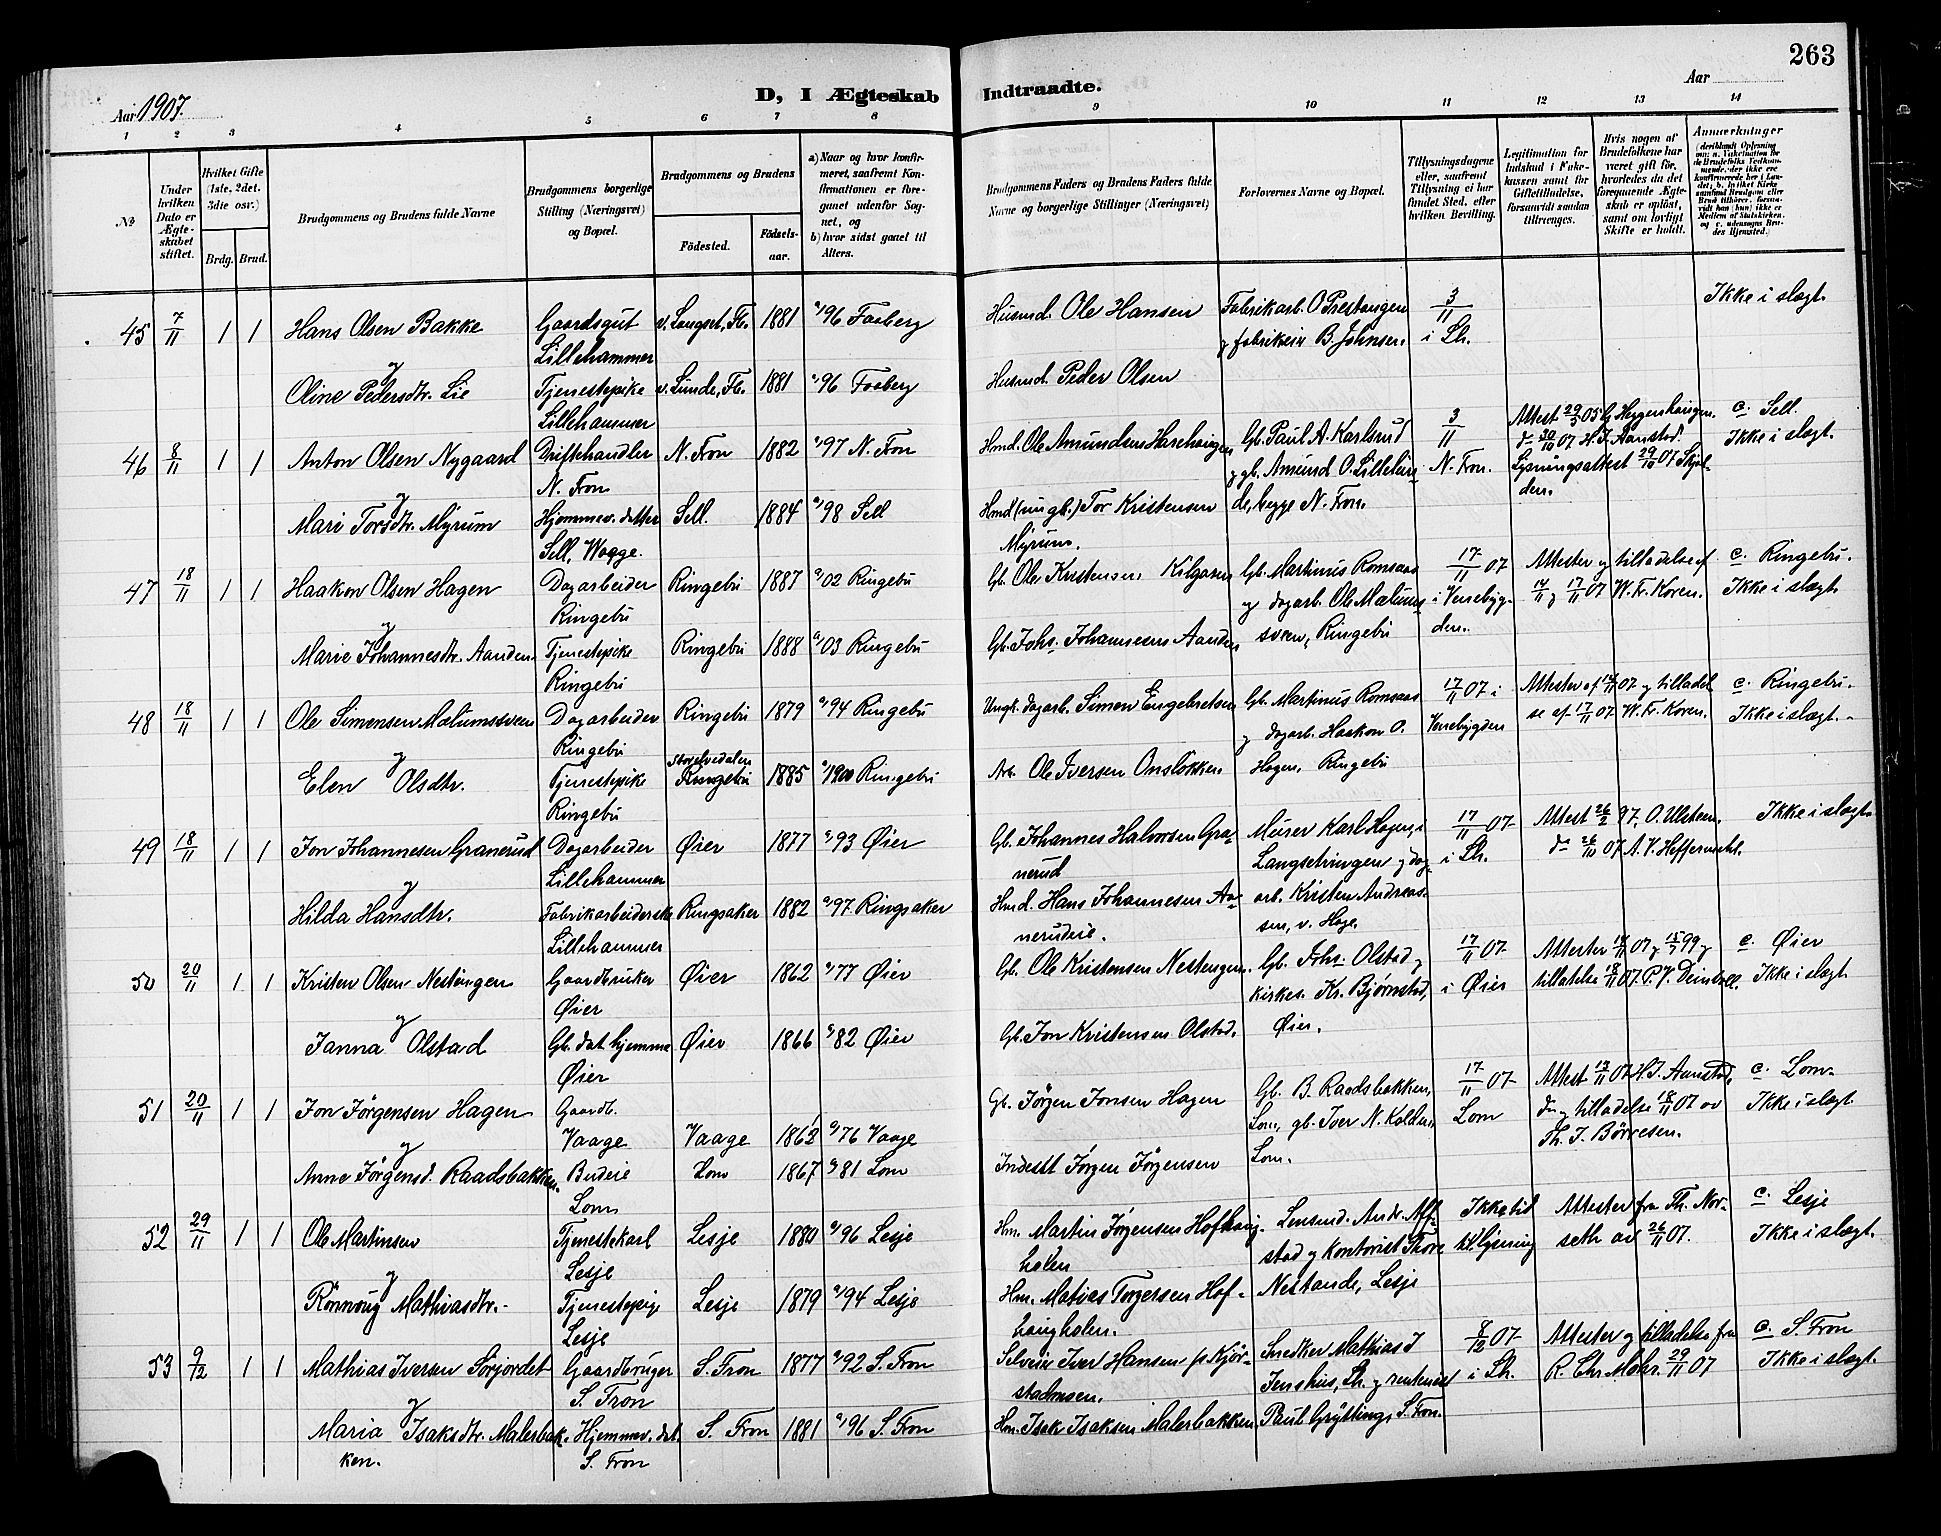 263
Aar 1907.
D, I Ægteskab Indtraadte.
Aar
1 2 3 4 5 6 7 8 9 10 11 12 13 14
No
Under hvilken Dato er Ægteskabet stiftet.
Hvilket Gifte (1ste, 2det, 3die osv.)
Brdg. Brud.
Brudgommens og Brudens fulde Navne
Brudgommens borgerlige Stilling (Næringsvei) og Bopæl.
Brudgommens og Brudens
Födested.
Födselsaar.
a) Naar og hvor konfirmeret, saafremt Konfirmationen er foregaaet udenfor Sognet, og
b) hvor sidst gaaet til Alters.
Brudgommens Faders og Brudens Faders fulde Navne og borgerlige Stillinger (Næringsvei)
Forlovernes Navne og Bopæl.
Tillysningsdagene eller, saafremt Tillysning ei har fundet Sted, efter hvilken Bevilling.
Legitimation for Indskud i Enkekassen samt for Giftetilladelse, forsaavidt saadan tiltrænges.
Hvis nogen af Brudefolkene har været gift før, hvorledes da det foregaaende Ægteskab er opløst, samt om lovligt Skifte er holdt.
Anmærkninger
45 7/11 1 1 Hans Olsen Bakke Gaardsgut Lillehammer v. Langset, Fb. 1881 96 Faaberg Husmd. Ole Hansen Fabrikarb. O Prestangen 3/11 Ikke i slægt.
y og fabrikeier B. Johnsen. i Lh.
Oline Pedersdtr. Lie Tjenestepike Lillehammer v. Lunde, Fb. 1881 96 Faaberg Husmd. Peder Olsen
46 8/11 1 1 Anton Olsen Nygaard Driftehandler N. Fron N. Fron 1882 97 N. Fron Hmd. Ole Amundsen Gb. Paul A. Karlsrud 3/11 Attest 29/3 05 c. Sell.
og gb. Amund O. N. Fron. d- 07 H. J. Aanstad. Ikke i slægt.
Lysningsattest 29/10 07
Mari Torsdtr. Myrum Hjemmev. datter Sell, Waage. Sell. 1884 98 Sell Hmd (ungk.) Tor Kristensen Myrum. begge N. Fron.
47 18/11 1 1 Haakon Olsen Hagen Dagarbeider Ringebu Ringebu 1887 02 Ringebu Gb. Ole Kristensen Gb. Martinus Romsaas 17/11 07 Attester og tilladelse af c. Ringebu.
og dagarb. Ole Mælumssveen, Ringebu i Venebygden. 17/11 07 W. Fr. Koren. Ikke i slægt
Marie Johannesdtr. Aanden. Tjenestepike Ringebu Ringebu 1888 03 Ringebu Gb. Johs. Johannesen Aanden
48 18/11 1 1 Ole Simensen Mælumssveen Dagarbeider Ringebu Ringebu 1879 94 Ringebu Ungk. dagarb. Simen Engebretsen Gb. Martinus Romsaas 17/11 07 i Venebygden Attester af 07 og tilladelse af 17/11 07. W. Fr. Koren. c. Ringebu.
og dagarb. Haakon O. Hagen, Ringebu Ikke i slægt.
Elen Olsdtr. Tjenestepike Ringebu Storelvedalen Ringebu 1885 1900 Ringebu Arb. Ole Iversen Onsløkken
49 18/11 1 1 Jon Johannesen Granerud Dagarbeider Lillehammer Øier 1877 93 Øier Gb. Johannes Halvorsen Granerud Murer Karl Hagen, i 17/11 07 i Lh. Attest 26/2 97, O. Ulsteen. Ikke i slægt
Langsetringen og dagarb. Kristen Andreassen, v. Hage. d- 26/10 07 A. V. Heffermehl.
Hilda Hansdtr. Fabrikarbeiderske Lillehammer Ringsaker 1882 97 Ringsaker Hmd. Hans Johannesen
50 20/11 1 1 Kristen Olsen Nestingen Gaardbruker Øier Øier 1862 77 Øier Gb. Ole Kristensen Nestengen. Gb. Johs. Olstad og kirkes. Kr. Bjørnstad, Øier. 17/11 07 i Øier Attester 07 og 99 og tillatelse 18/11 07. c. Øier
Ikke i slægt
Janna Olstad Gb. dat. hjemme Øier Øier 1866 82 Øier Gb. Jon Kristensen Olstad.
51 20/11 1 1 Jon Jørgensen Hagen Gaardb. Vaage Vaage 1863 76 Vaage Gb. Jørgen Jonsen Hagen Gb. B. Raadsbakken, Lom, gb. Iver N. Kolden, Lom. 17/11 07 Lom Attest 07 H. J. Aanstad, og tilladelse 18/11 07 av Th. J. Børresen. c. Lom.
Ikke i slægt
Anne Jørgensd. Raadsbakken. Budeie Lom Lom 1867 81 Lom Inderst Jørgen Jørgensen
52 29/11 1 1 Ole Martinsen Tjenestekarl Lesje Lesje 1880 96 Lesje Hm. Martin Jørgensen Lensmd. Andr. og kontorist Thore Nestande, Lesje Ikke tid til lysning Attester fra Th. Norseth av 26/11 07. c. Lesje
Ikke i slægt.
Rønnoug Mathiasdtr. Tjenestepige Lesje Lesje 1879 94 Lesje Hm. Matias Torgersen
53 9/12 1 1 Mathias Iversen Sørjordet Gaardbruger S. Fron S. Fron 1877 92 S. Fron Selveier Iver Hansen Snedker Mathias J Jenshus, Lh. og Paul Grytting, S. Fron. 8/12 07 i Lh. Attester og tilladelse fra R. Chr. Mohr. 29/11 07 c. S. Fron
Ikke i slægt.
Maria Isaksdtr. Malerbakken. Hjemmev. dat. S. Fron S. Fron 1881 96 S. Fron Hm. Isak Isaksen Malerbakken